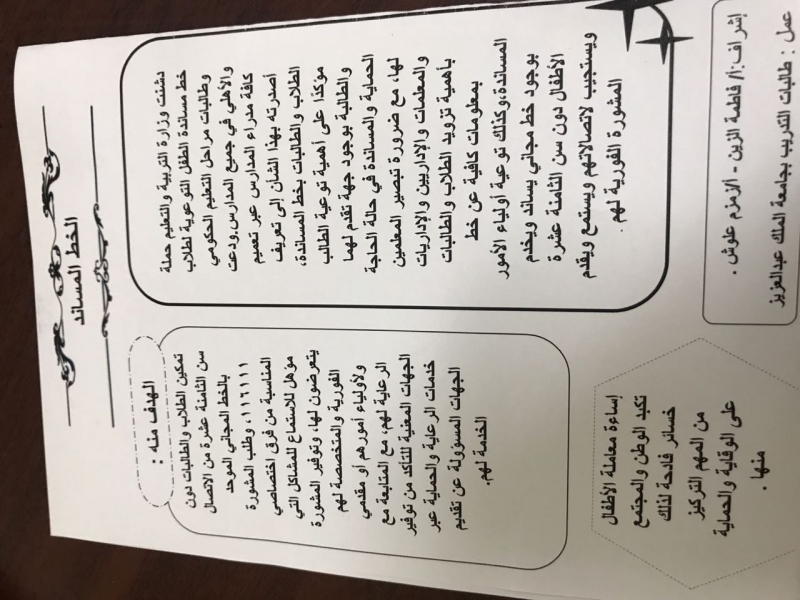 الخط المساند
دشنت وزارة التربية والتعليم حملة
خط مساندة الطفل التوعوية لطلاب
وطالبات مراحل التعليم الحكومي
والأهلي في جميع المدارس.ودعت
كافة مدراء المدارس عبر تعميم
أصدرته بهذا الشأن إلى تعريف
الطلاب والطالبات بخط المساندة،
مؤكدًا على أهمية توعية الطالب
والطالبة بوجود جهة تقدم لهما
الحماية والمساندة في حالة الحاجة
لها، مع ضرورة تبصير المعلمين
والمعلمات والإداريين والإداريات
بأهمية تزويد الطلاب والطالبات
بمعلومات كافية عن خط
المساندة،وكذلك توعية أولياء الأمور
بوجود خط مجاني يساند ويخدم
الأطفال دون سن الثامنة عشرة
ويستجيب لاتصالاتهم ويستمع ويقدم
المشورة الفورية لهم .
الهدف منه :
تمكين الطلاب والطالبات دون
سن الثامنة عشرة من الاتصال
بالخط المجاني الموحد
١١٦١١١، وطلب المشورة
المناسبة من فرق اختصاصي
مؤهل للاستماع للمشاكل التي
يتعرضون لها، وتوفير المشورة
الفورية والمتخصصة لهم
ولأولياء أمورهم أو مقدمي
الرعاية لهم، مع المتابعة مع
الجهات المعنية للتأكد من توفير
خدمات الرعاية والحماية عبر
الجهات المسؤولة عن تقديم
الخدمة لهم.
إساءة معاملة الأطفال
تكبد الوطن والمجتمع
خسائر فادحة لذلك
من المهم التركيز
على الوقاية والحماية
منها .
إشراف:أ/ فاطمة الزين - أ/زمزم علوش .
عمل : طالبات التدريب بجامعة الملك عبدالعزيز